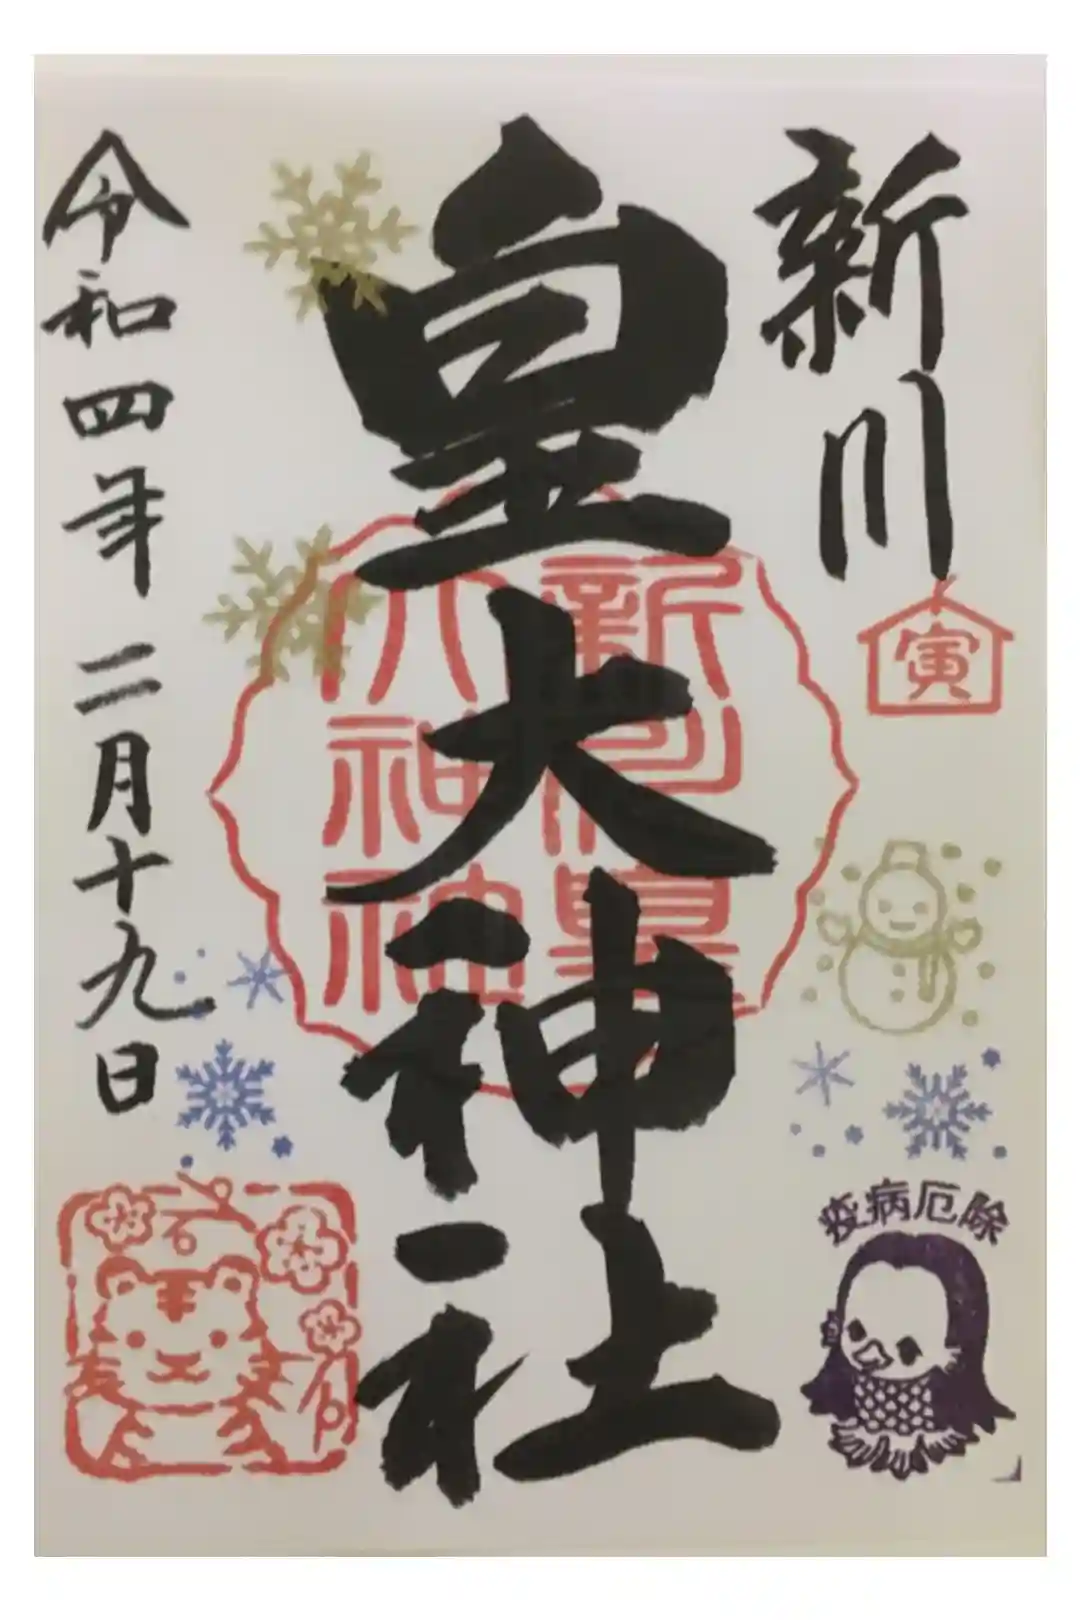 新川
皇大神社
令和四年 二月十九日
新川皇
大神社
寅
疫病厄除